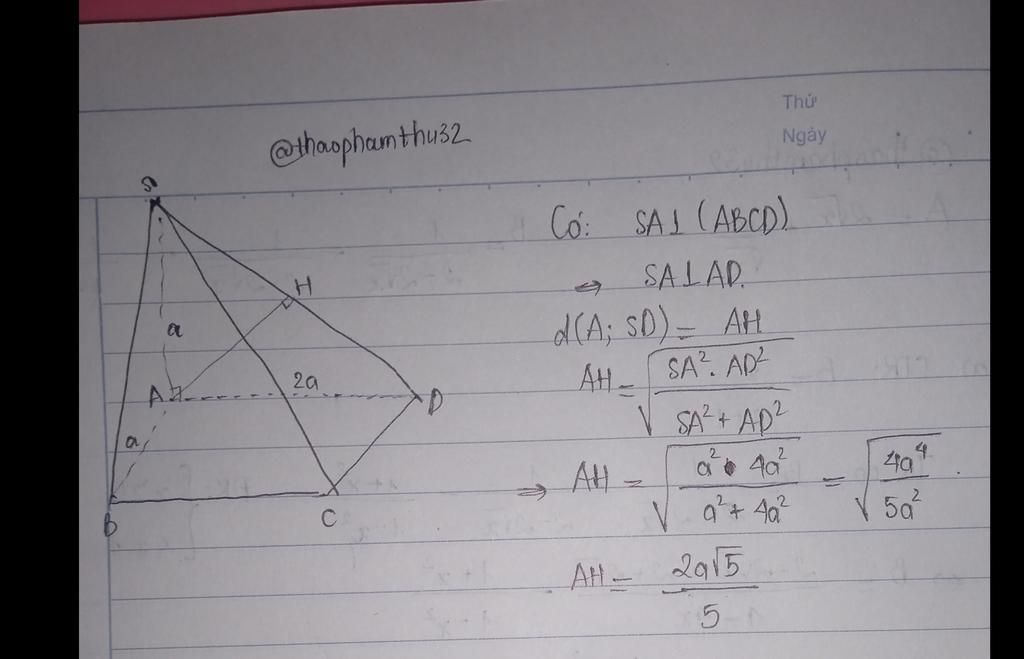 Thứ
Ngày
@thaophamthu32
S
H
a
A
2a
D
a
B
C
Có: SA⊥(ABCD)
⇒ SA⊥AD.
d(A; SD) = AH
AH = √(SA². AD² / SA² + AD²)
⇒ AH = √(a² • 4a² / a² + 4a²) = √(4a⁴ / 5a²).
AH = 2a√5 / 5